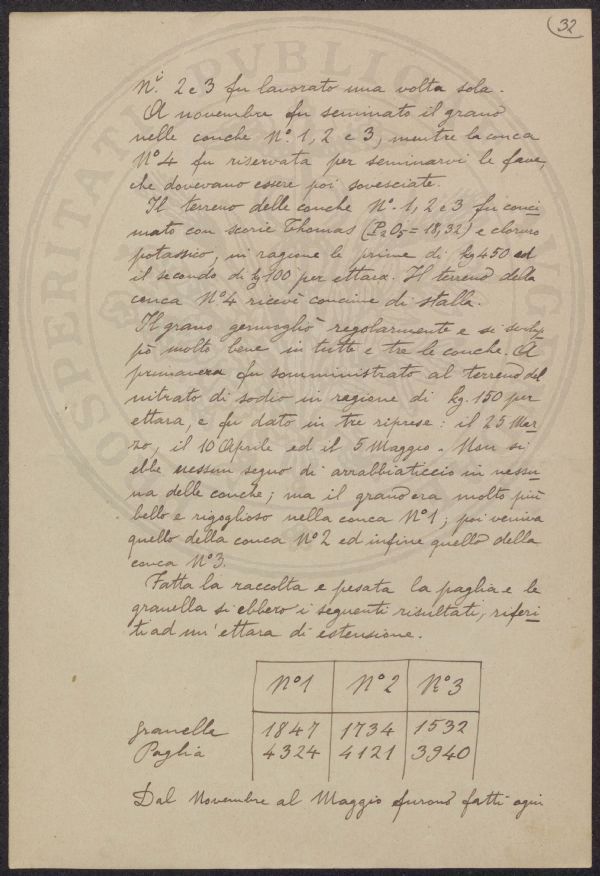 32
N.i 2 e 3 fu lavorato una volta sola.
A novembre fu seminato il grano
nelle conche N.º 1, 2 e 3, mentre la conca
Nº 4 fu riservata per seminarvi le fave,
che dovevano essere poi sovesciate.
Il terreno delle conche Nº. 1, 2 e 3 fu conci-
mato con scorie Thomas (P2O5 = 18,32) e cloruro
potassico, in ragione le prime di kg 450 ed
il secondo di kg 100 per ettara. Il terreno della
conca Nº 4 ricevè concime di stalla.
Il grano germogliò regolarmente e si svilup-
pò molto bene in tutte e tre le conche. A
primavera fu somministrato al terreno del
nitrato di sodio in ragione di kg. 150 per
ettara, e fu dato in tre riprese: il 25 Mar-
zo, il 10 Aprile ed il 5 Maggio. Non si
ebbe nessun segno di arrabbiaticcio in nessu-
na delle conche; ma il grano era molto più
bello e rigoglioso nella conca Nº 1; poi veniva
quello della conca Nº 2 ed infine quello della
conca Nº 3.
Fatta la raccolta e pesata la paglia e le
granella si ebbero i seguenti risultati, riferi-
ti ad un' ettara di estensione.
Nº 1 Nº 2 Nº 3
granella 1847 1734 1532
Paglia 4324 4121 3940
Dal Novembre al Maggio furono fatti ogni